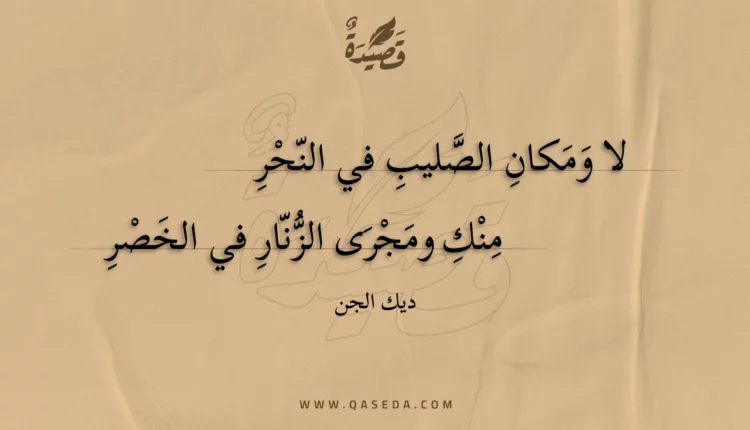 قَصِيْدَةٌ
لا وَمَكانِ الصَّليبِ في النّحْرِ
مِنْكِ ومَجْرَى الزُّنّارِ في الخَصْرِ
ديك الجن
WWW.QASEDA.COM